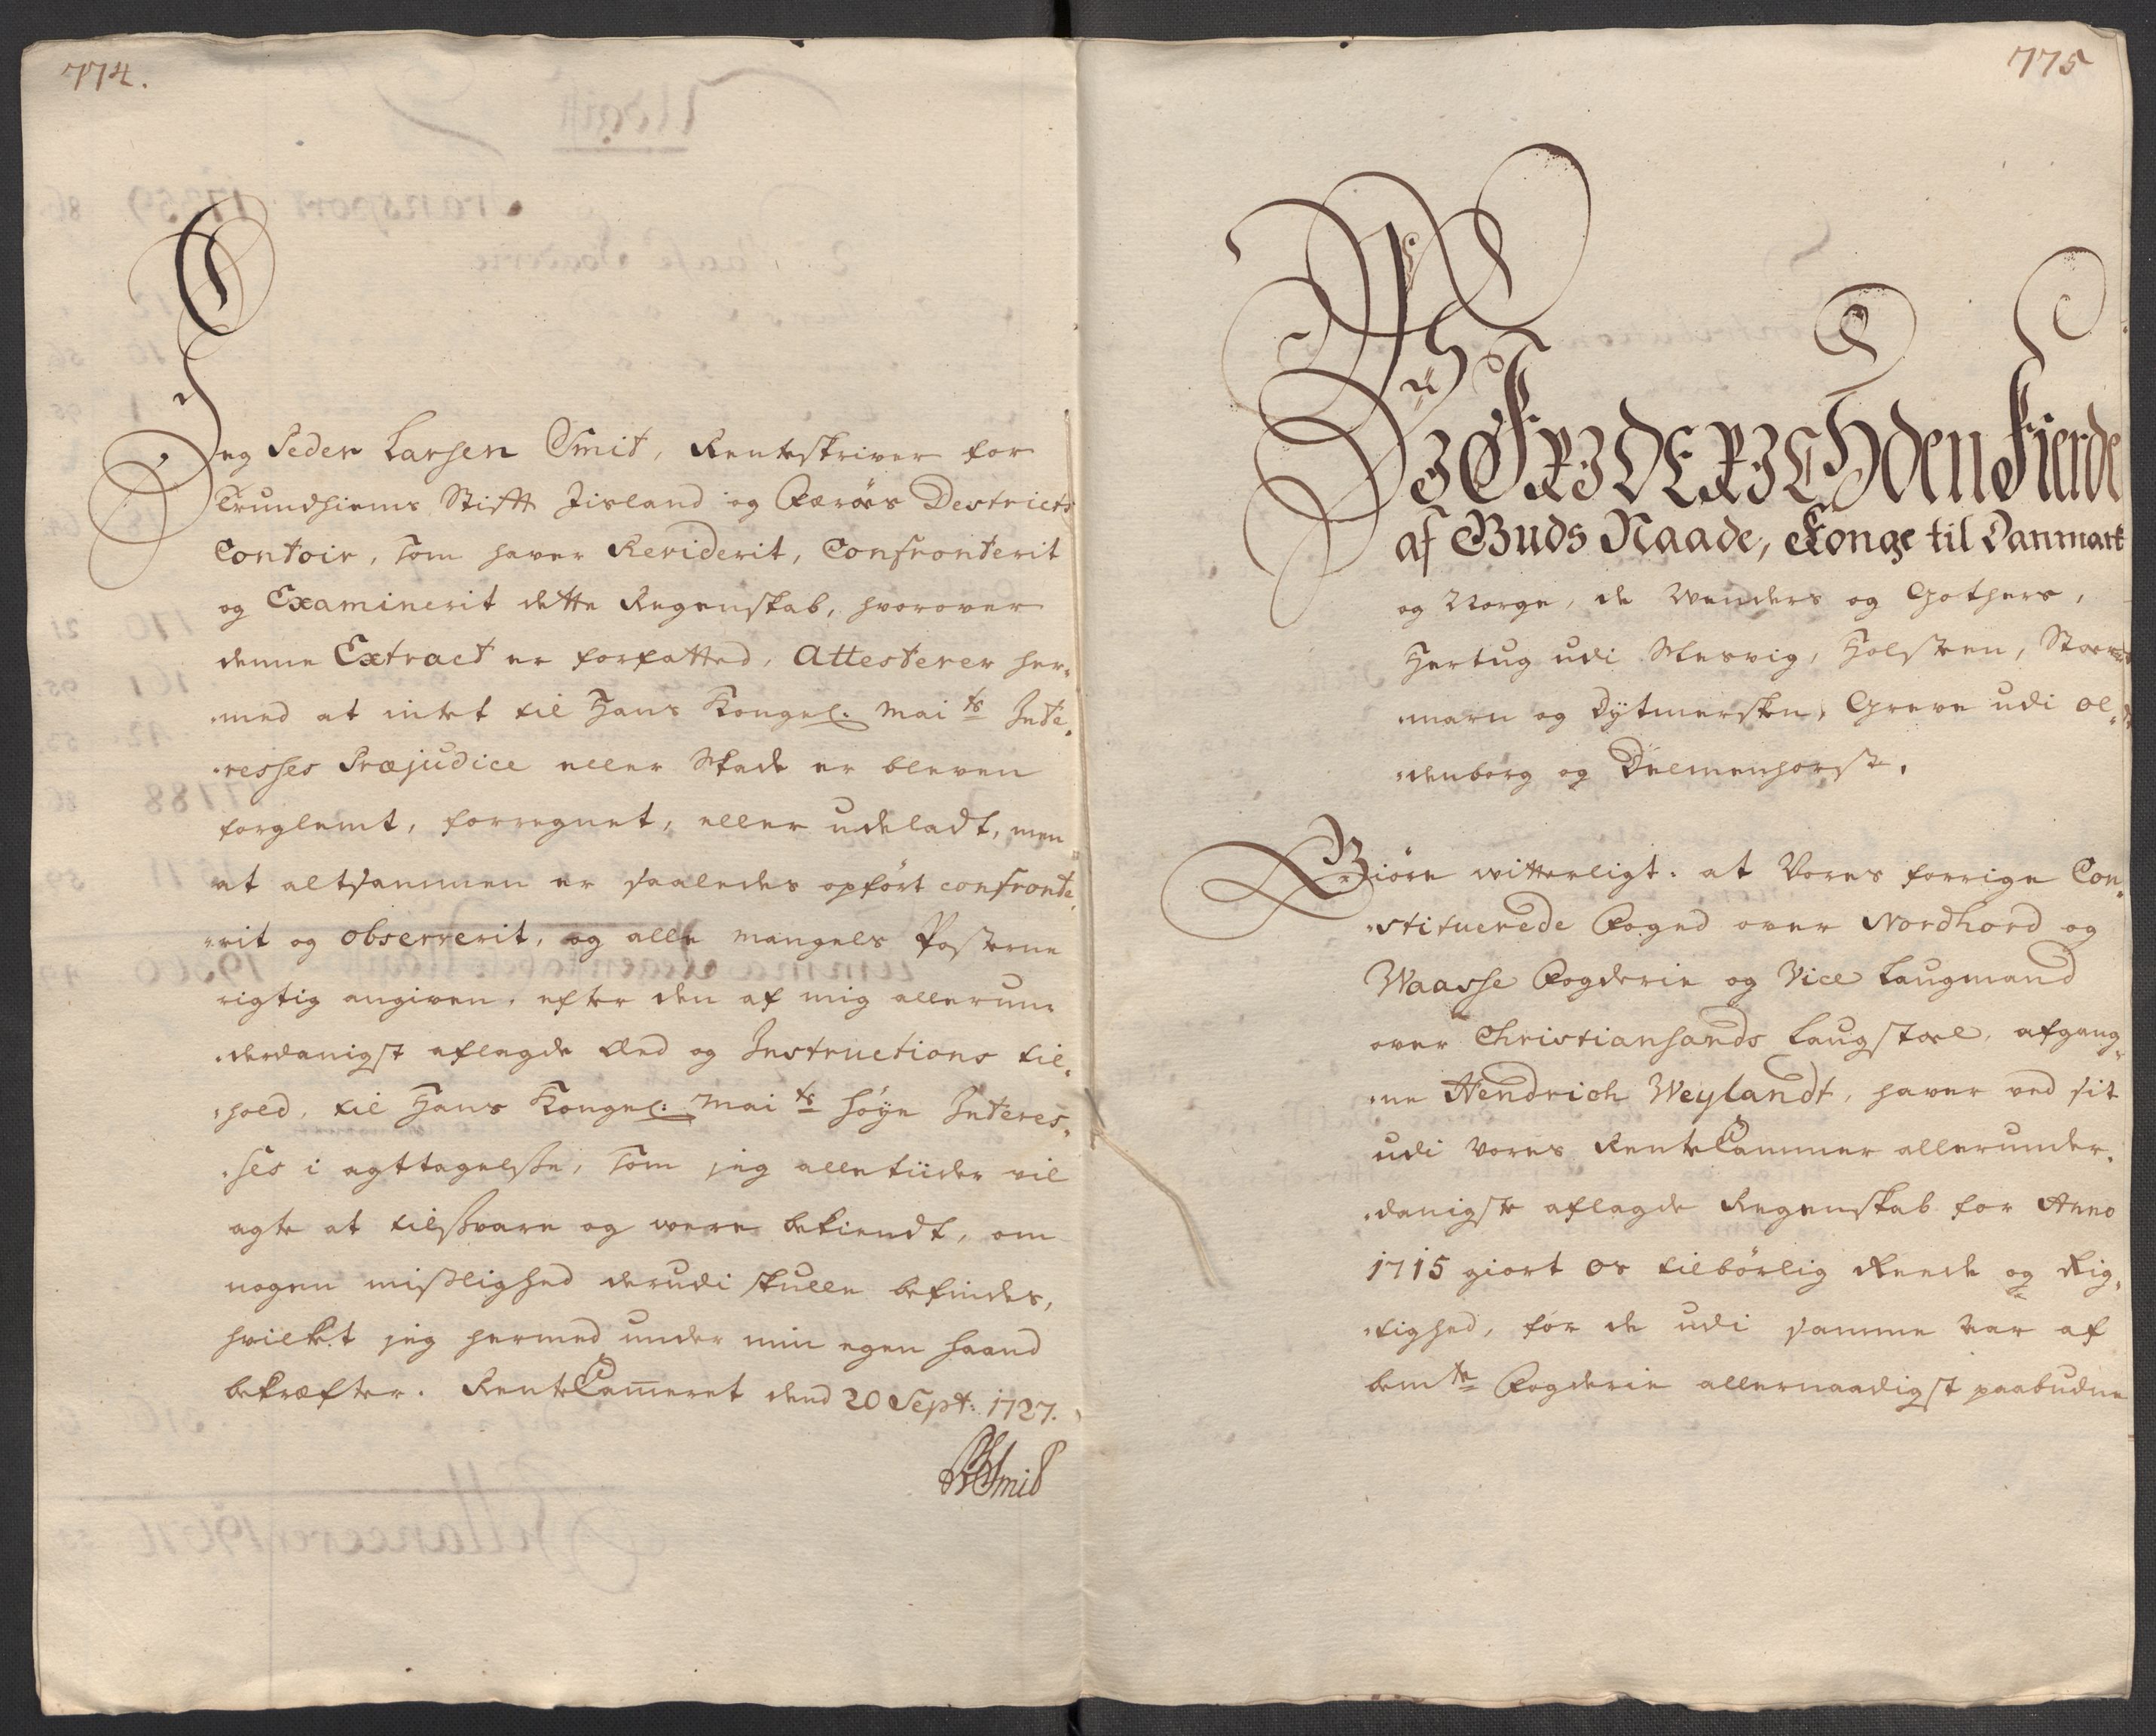 774.
Jeg Peder Larsen Smit, Renteskriver for
Trundhiems Stifft Jisland og Færöes Destricts
Contoir, som haver Reviderit, Confronterit
og Examinerit dette Regenskab, hvorover
denne Extract er forfatted, Attesterer her-
-med at intet til Hans Kongel: Mai ts Inte-
-resses Præjudice eller Skade er bleven
forglemt, forregnet, eller udeladt, men
at altsammen er saaledes opfört confronte-
-rit og observerit, og alle mangels Posterne
rigtig angiven, efter den af mig allerun-
-derdanigst aflagde Eed og Instructions til-
-hold, til Hans Kongel: Mai ts höye Interes-
-ses i agttagelsse, som jeg alletiider vil
agte at tilssvare og were bekiendt, om
nogen misslighed derudi skulle befindes,
hvilket jeg hermed under min egen haand
bekræfter. RenteCam̅eret dend 20 Sept: 1727.
PLSmid
775
WJ FRJDERJCH den Fierde
af Guds Naade, Konge til Danmark
og Norge, de Wenders og Gothers,
Hertug udi Slesvig, Holsteen, Stor-
-marn og Dÿtmersken, Greve udi Ol-
-denborg og Delmenhorst.
Giöre witterligt: at Vores forrige Con-
-stituerede Foged over Nordhord og
Waasse Fogderie og Vice Laugmand
over Christiansands Laugstoel, afgang-
-ne Hendrich Weylandt, haver ved sit
udi Vores RenteCammer allerunder-
-danigste aflagde Regenskab for Anno
1715 giort Os tilbörlig Reede og Rig-
-tighed, for de udi samme Aar af
bem te Fogderie allernaadigst paabudne